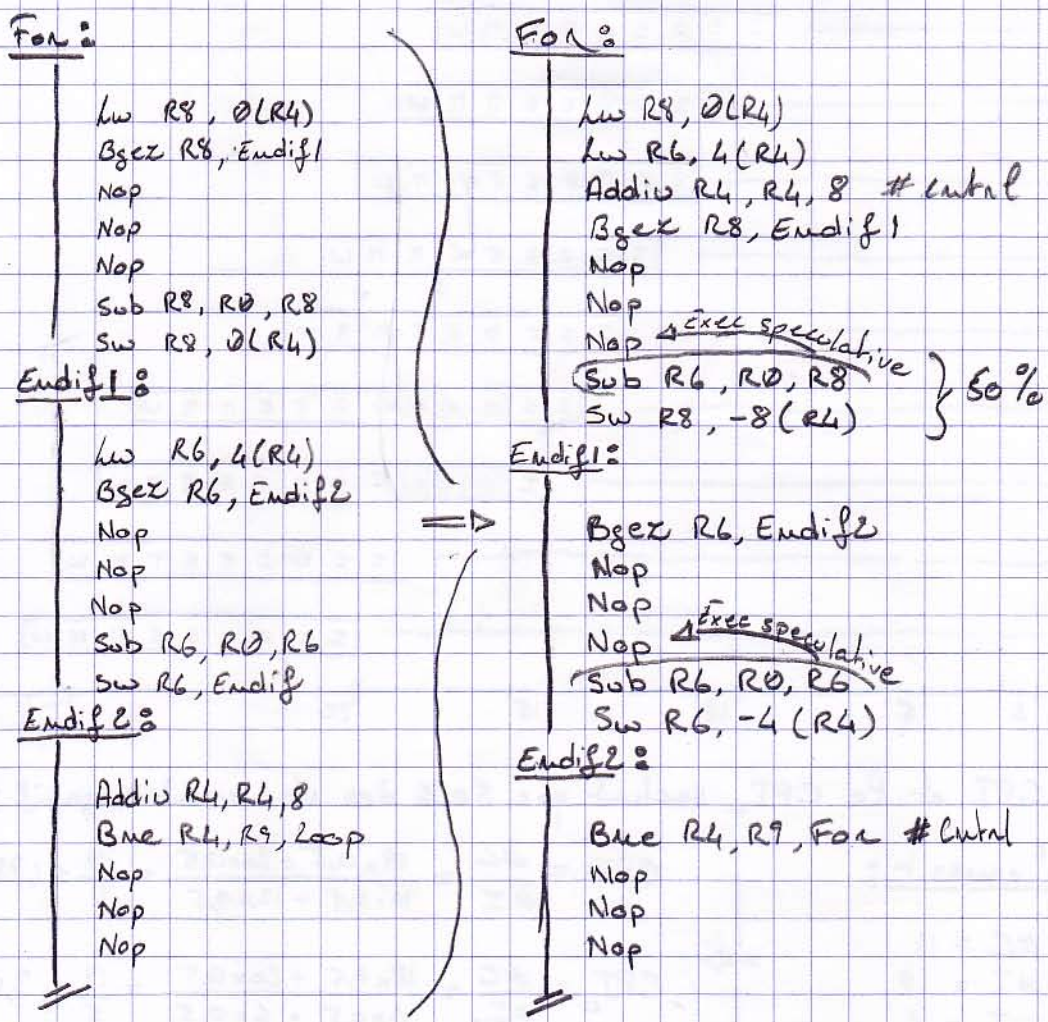 For :
Lw R8, 0(R4)
Bgez R8, Endif1
Nop
Nop
Nop
Sub R8, R0, R8
Sw R8, 0(R4)
Endif1 :
Lw R6, 4(R4)
Bgez R6, Endif2
Nop
Nop
Nop
Sub R6, R0, R6
Sw R6, Endif
Endif2 :
Addiu R4, R4, 8
Bne R4, R9, Loop
Nop
Nop
Nop
=>
For :
Lw R8, 0(R4)
Lw R6, 4(R4)
Addiu R4, R4, 8 # Cntrl
Bgez R8, Endif1
Nop
Nop
Nop Exec speculative
Sub R6, R0, R8
Sw R8, -8(R4) } 50 %
Endif1 :
Bgez R6, Endif2
Nop
Nop
Nop Exec speculative
Sub R6, R0, R6
Sw R6, -4(R4)
Endif2 :
Bne R4, R9, For # Cntrl
Nop
Nop
Nop